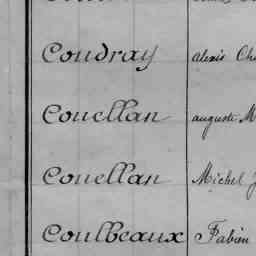 Coudray alexis
Couellan auguste M
Couellan Michel J
Coulbeaux Fabien